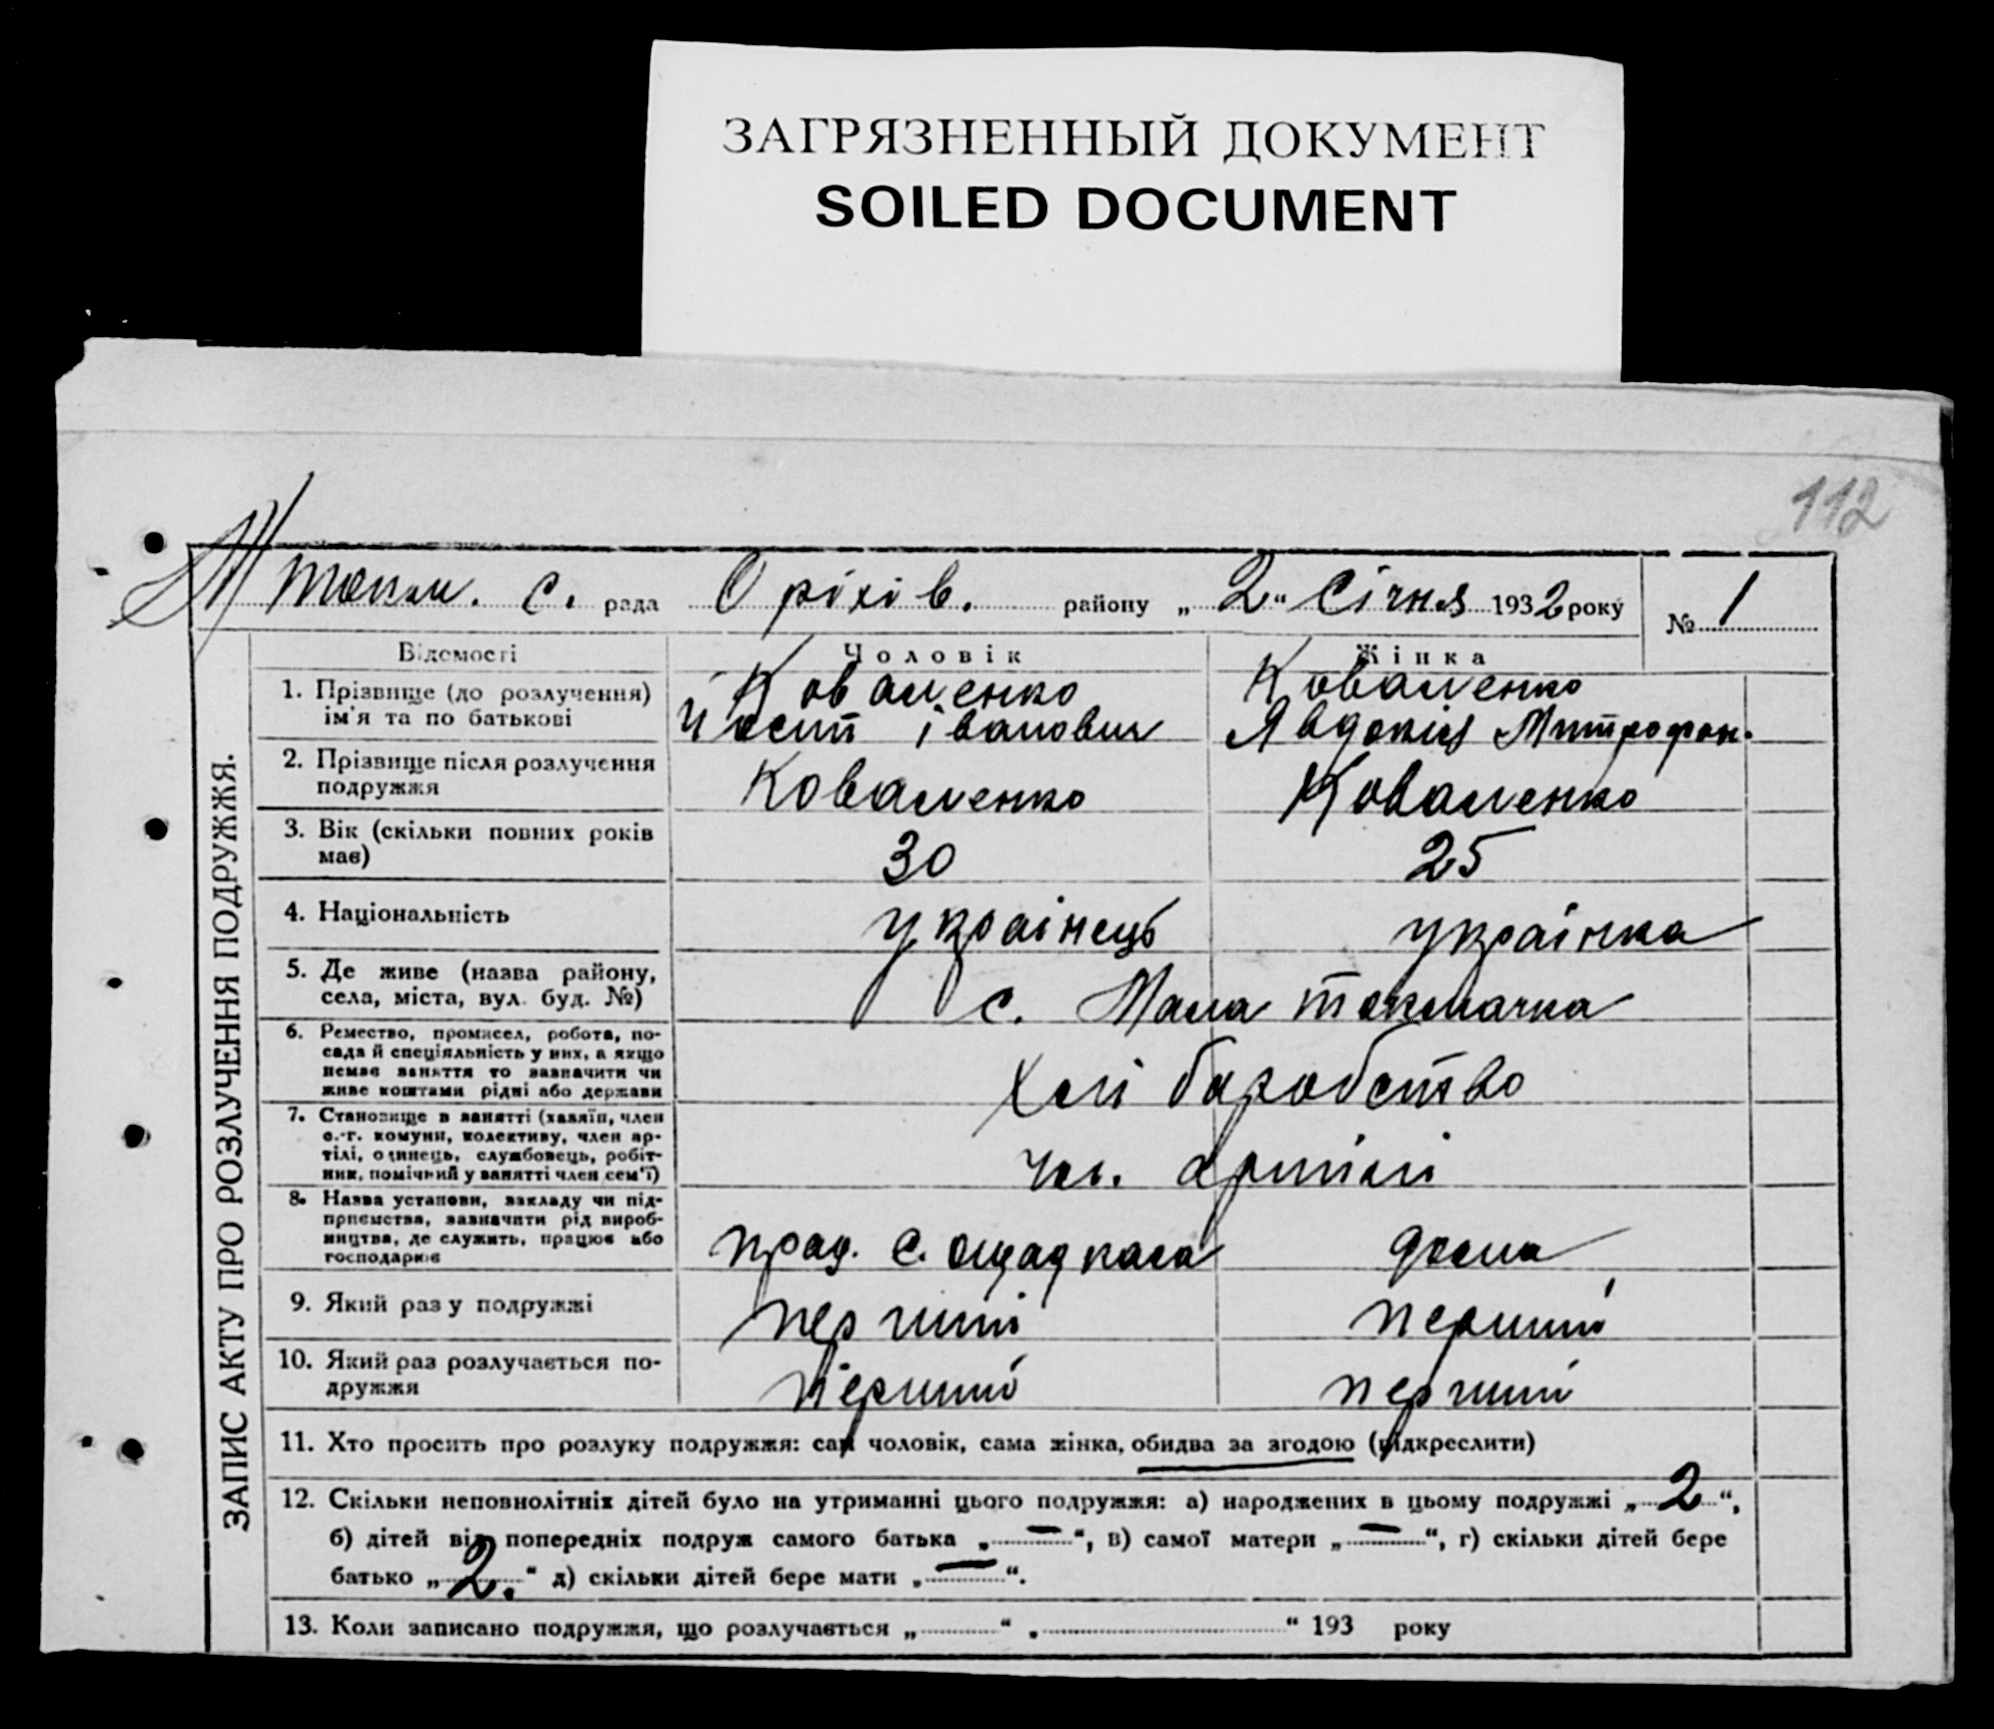 ЗАГРЯЗНЕННЫЙ ДОКУМЕНТ
SOILED DOCUMENT
112
М Токм. с. рада Оріхів. району „2“ Січня 1932 року № 1
ЗАПИС АКТУ ПРО РОЗЛУЧЕННЯ ПОДРУЖЖЯ.
Відомості Чоловік Жінка
1. Прізвище (до розлучення) Коваленко Коваленко
ім'я та по батькові Йосип Іванович Явдокія Митрофон.
2. Прізвище після розлучення
подружжя Коваленко Коваленко
3. Вік (скільки повних років
має) 30 25
4. Національність українець українка
5. Де живе (назва району,
села, міста, вул. буд. №) с. Мала Токмачка
6. Ремество, промисел, робота, по-
сада й спеціяльність у них, а якщо
немає заняття то зазначити чи
живе коштами рідні або держави Хліборобство
7. Становище в занятті (хазяїн, член
с.-г. комуни, колективу, член ар-
тілі, одинець, службовець, робіт-
ник, помічний у занятті член сем'ї) чл. артілі
8. Назва установи, закладу чи під-
приємства, зазначити рід вироб-
ництва, де служить, працює або
господарює прац. с. ощадкаса дома
9. Який раз у подружжі перший перший
10. Який раз розлучається по-
дружжя перший перший
11. Хто просить про розлуку подружжя: сам чоловік, сама жінка, обидва за згодою (підкреслити)
12. Скільки неповнолітніх дітей було на утриманні цього подружжя: а) народжених в цьому подружжі „2“,
б) дітей від попередніх подруж самого батька „—“, в) самої матери „—“, г) скільки дітей бере
батько „2.“ д) скільки дітей бере мати „—“.
13. Коли записано подружжя, що розлучається „......“ „......“ 193 року